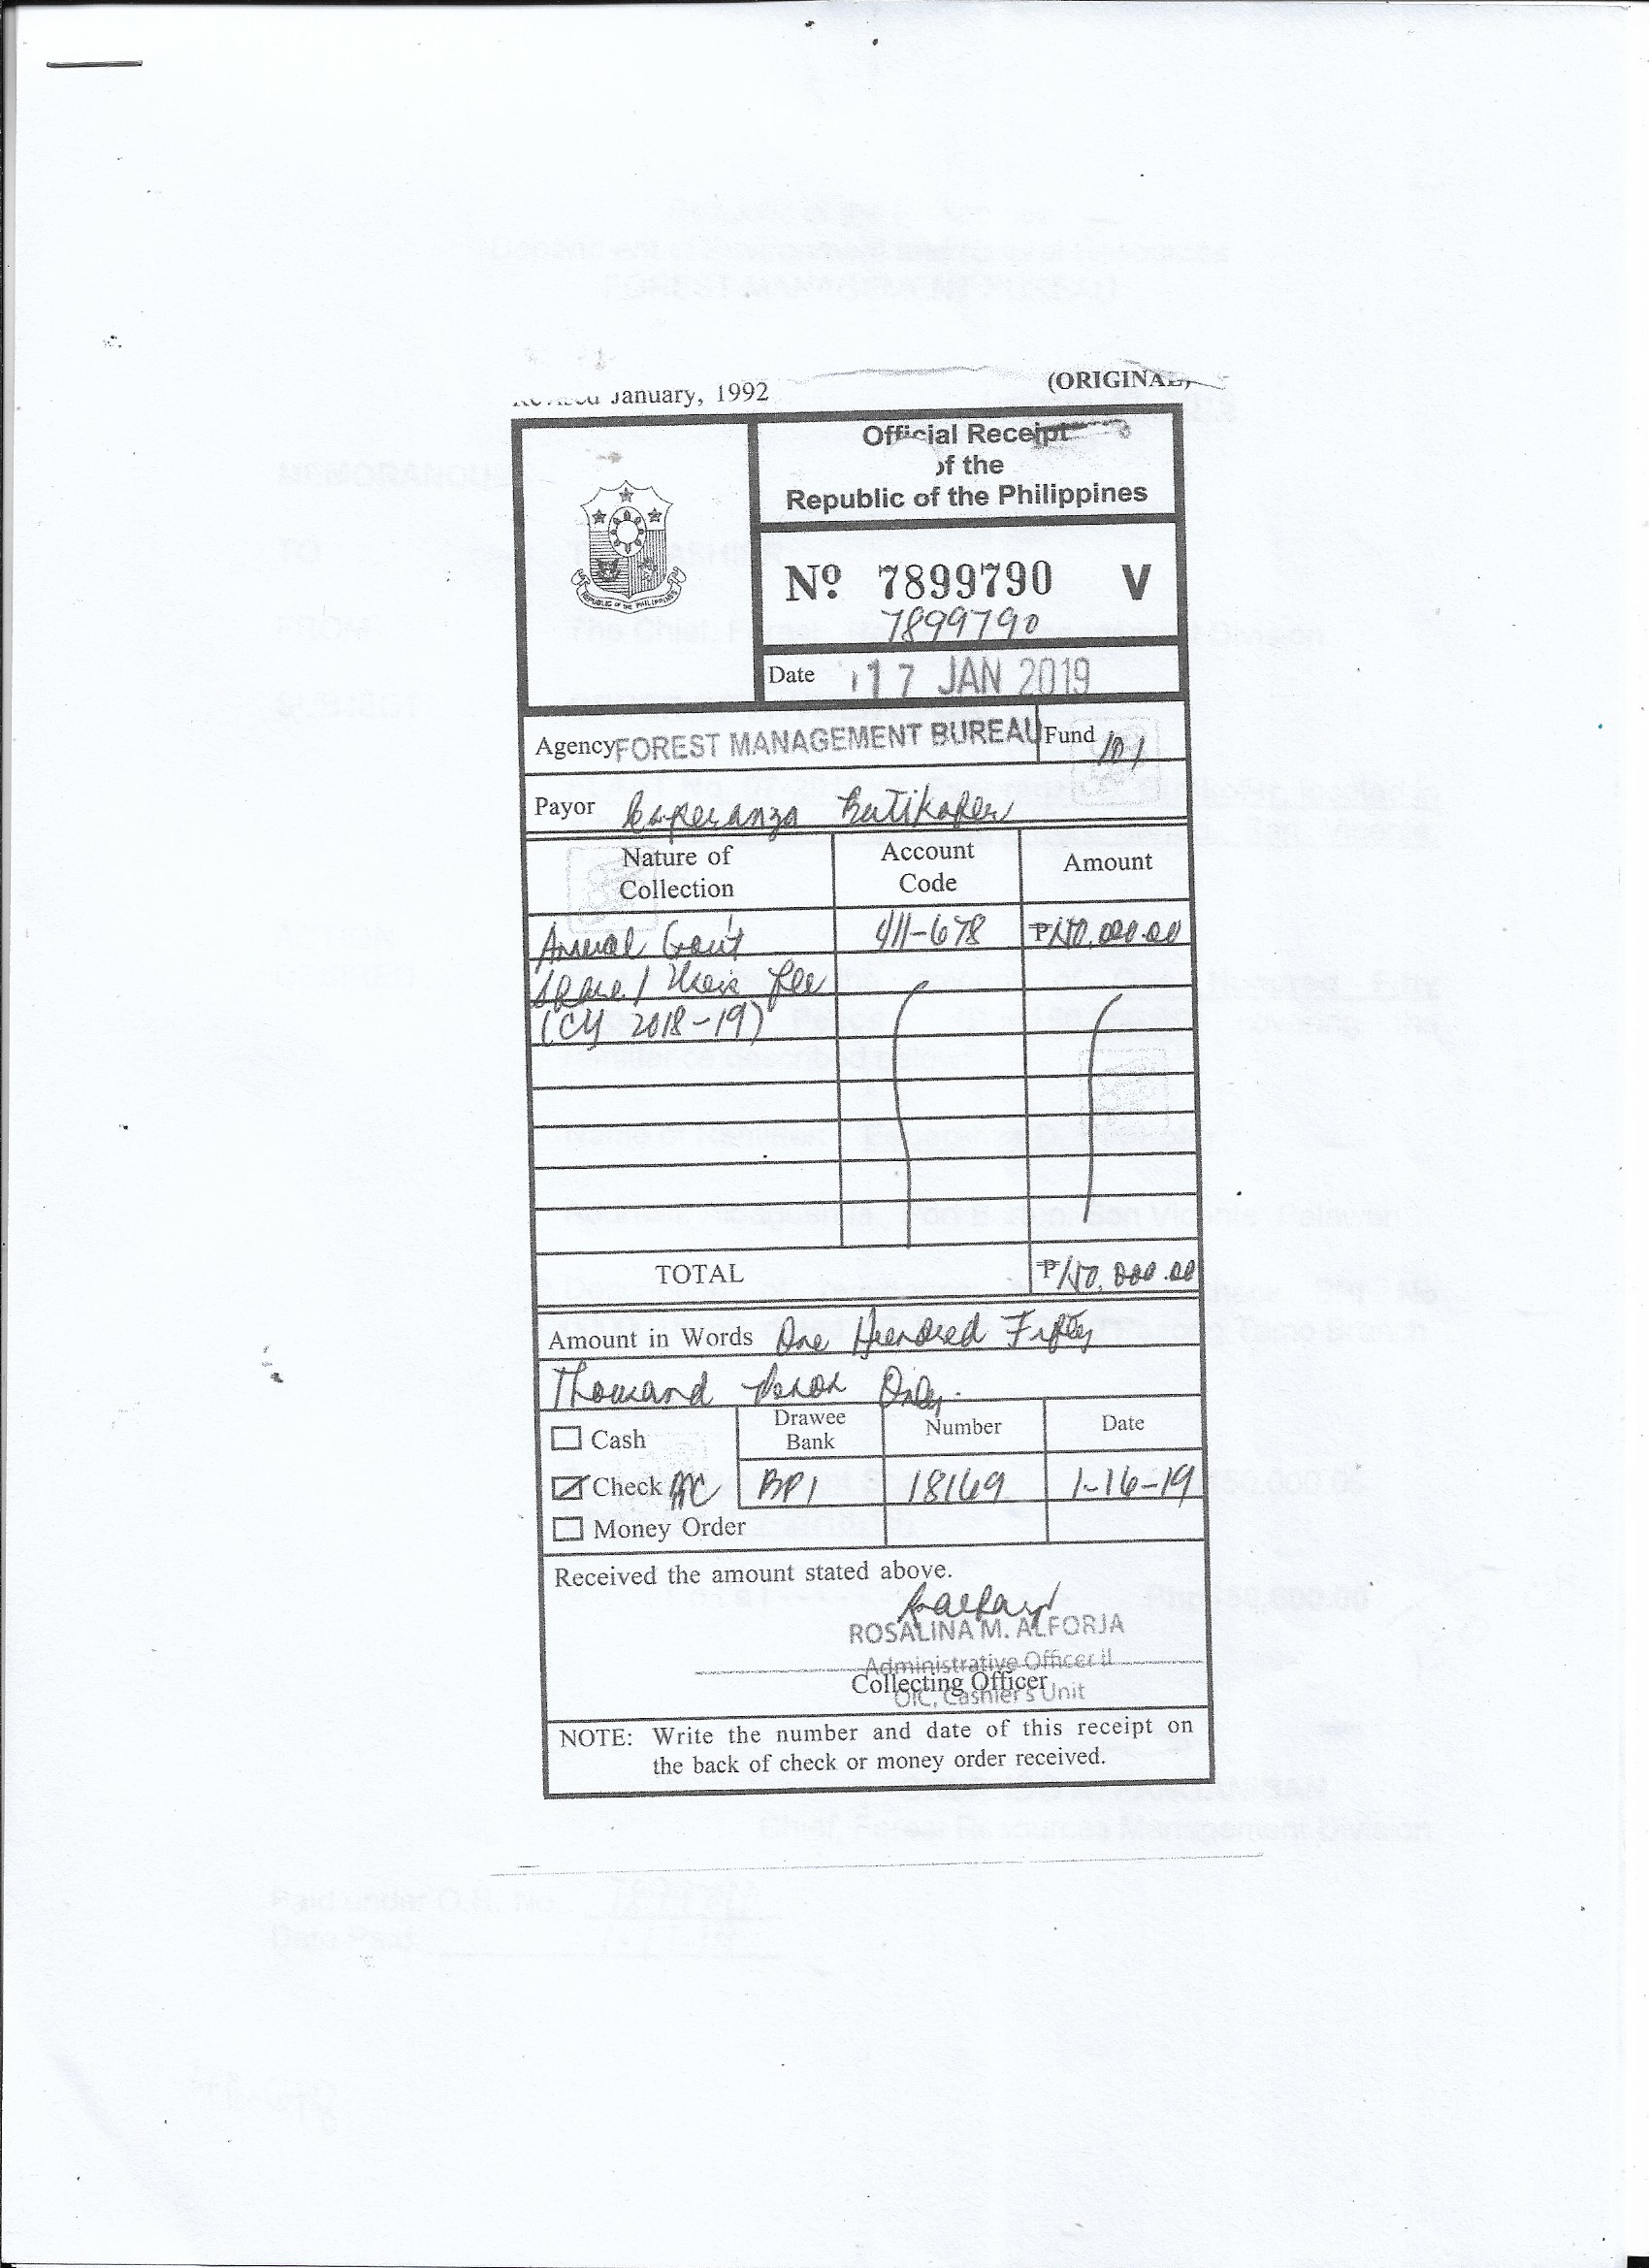 January, 1992
(ORIGINAL)
Official Receipt
of the
Republic of the Philippines
REPUBLIC OF THE PHILIPPINES
Nº 7899790 V
7899790
Date 17 JAN 2019
Agency FOREST MANAGEMENT BUREAU Fund 101
Payor Esperanza
Nature of Collection Account Code Amount
Annual Gov't 411-678 ₱150,000.00
Share / User's fee
(CY 2018-19)
TOTAL ₱150,000.00
Amount in Words One Hundred Fifty
Thousand Pesos Only.
Cash Drawee Bank Number Date
Check BPI 18169 1-16-19
Money Order
Received the amount stated above.
ROSALINA M. ALFORJA
Administrative Officer II
Collecting Officer
OIC, Cashier's Unit
NOTE: Write the number and date of this receipt on
the back of check or money order received.